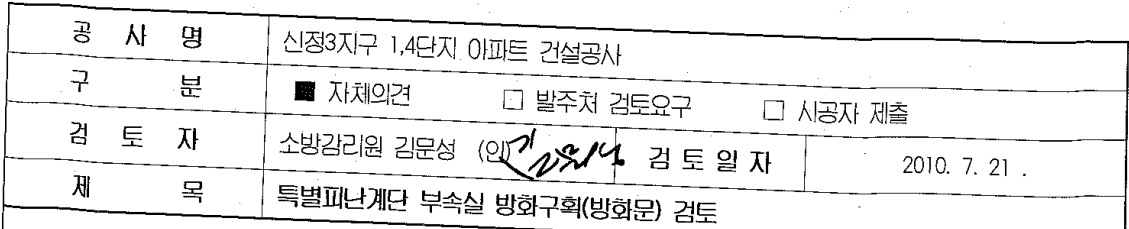 공 사 명 신정3지구 1,4단지 아파트 건설공사
구 분 ■ 자체의견 □ 발주처 검토요구 □ 시공자 제출
검 토 자 소방감리원 김문성 (인) 검 토 일 자 2010. 7. 21 .
제 목 특별피난계단 부속실 방화구획(방화문) 검토